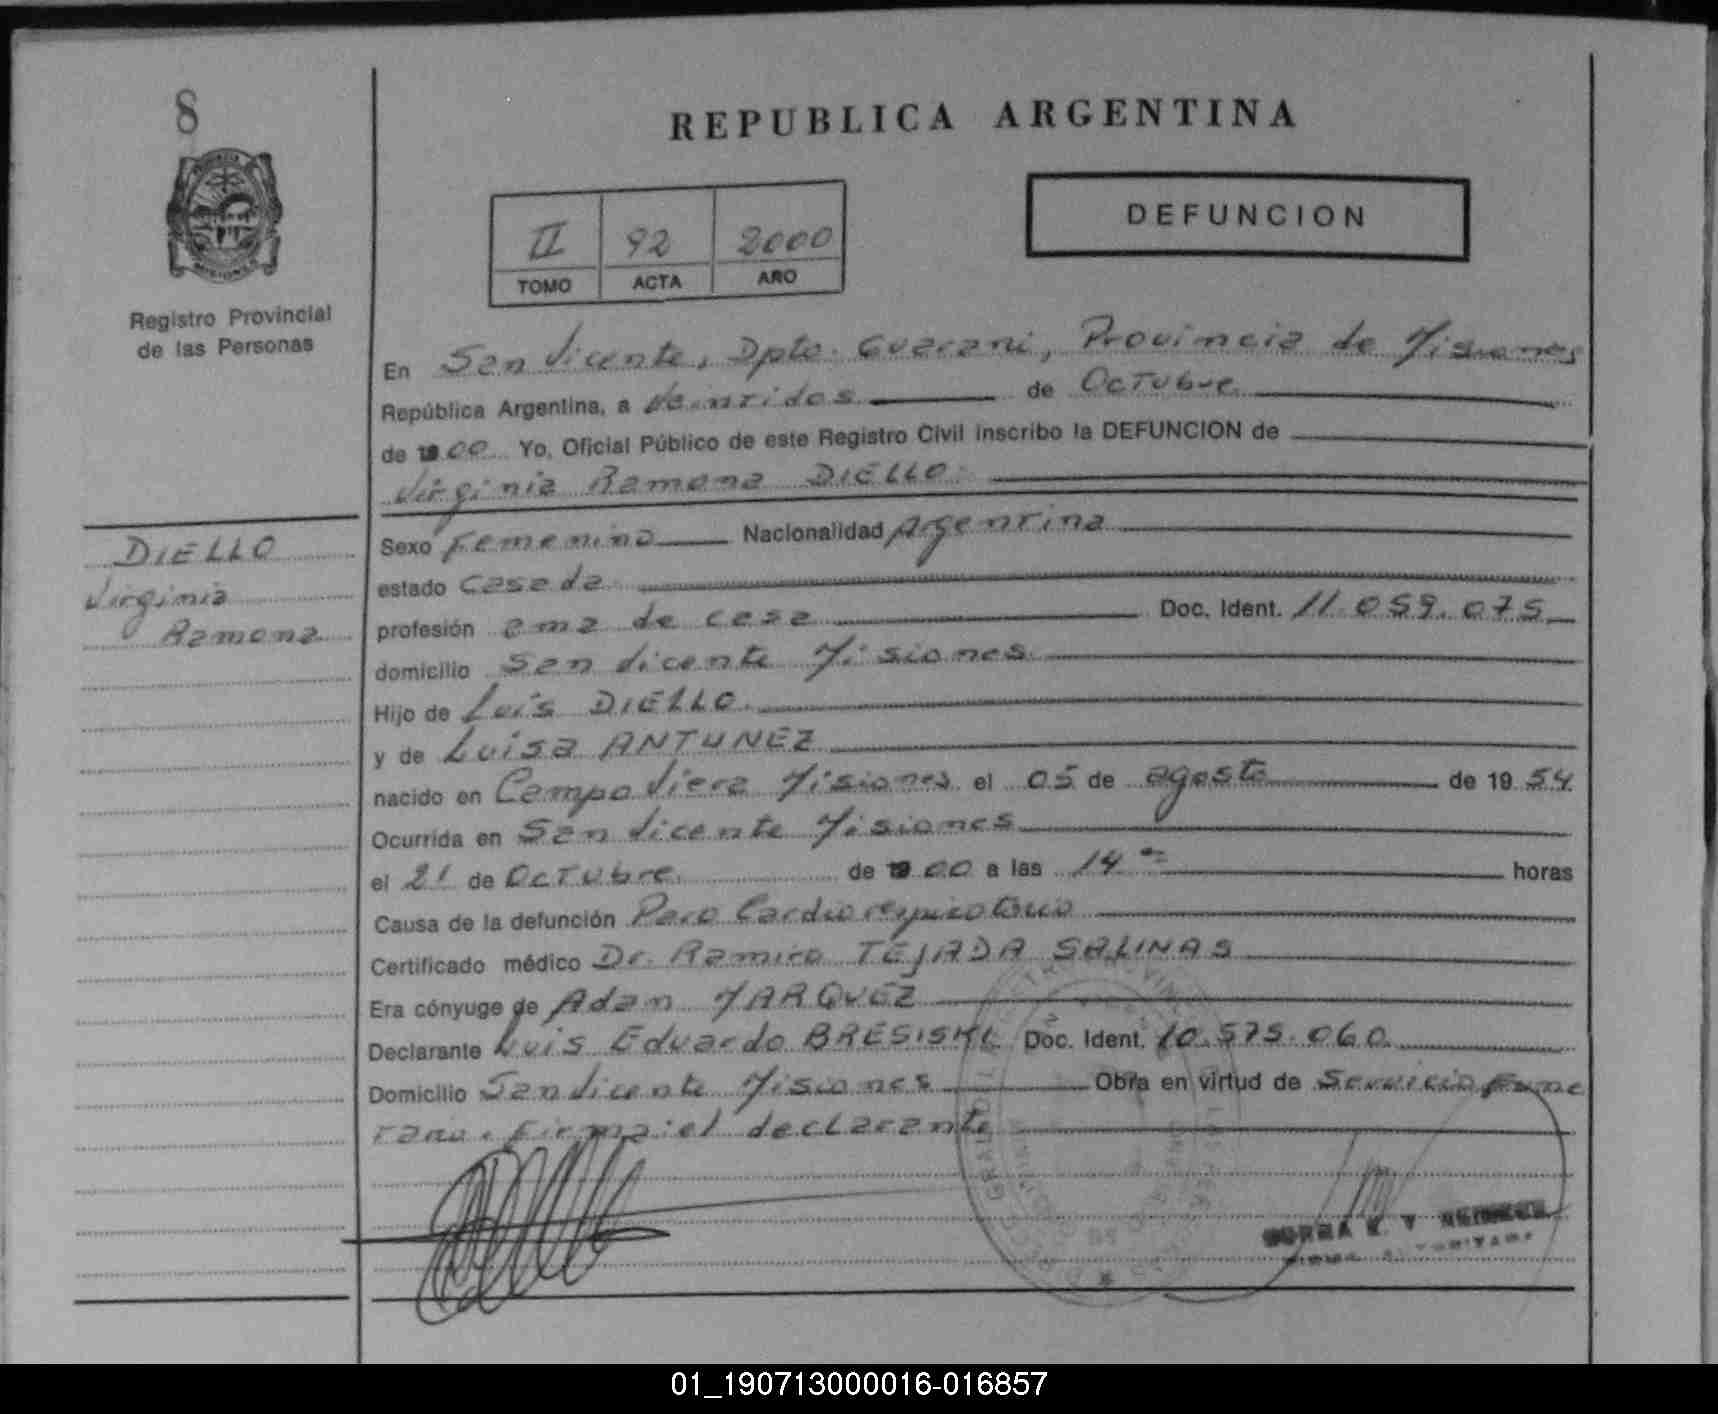 8
REPUBLICA ARGENTINA
DEFUNCION
II 92 2000
TOMO ACTA AÑO
Registro Provincial
de las Personas
En San Vicente, Dpto. Guarani, Provincia de Misiones
República Argentina, a Veintidos de Octubre
de 1900 Yo, Oficial Público de este Registro Civil inscribo la DEFUNCION de
Virginia Ramona DIELLO
DIELLO
Virginia
Ramona
Sexo Femenino Nacionalidad Argentina
estado Casada
profesión ama de casa Doc. Ident. 11.059.075
domicilio San Vicente Misiones
Hijo de Luis DIELLO
y de Luisa ANTUNEZ
nacido en Campo Viera Misiones el 05 de agosto de 1954
Ocurrida en San Vicente Misiones
el 21 de Octubre de 1900 a las 14 horas
Causa de la defunción Paro Cardiorespiratorio
Certificado médico Dr. Ramiro TEJADA SALINAS
Era cónyuge de Adan MARQUEZ
Declarante Luis Eduardo BRESISKI Doc. Ident. 10.575.060
Domicilio San Vicente Misiones Obra en virtud de Servicio Fune
rario. Firma: el declarante
01_190713000016-016857